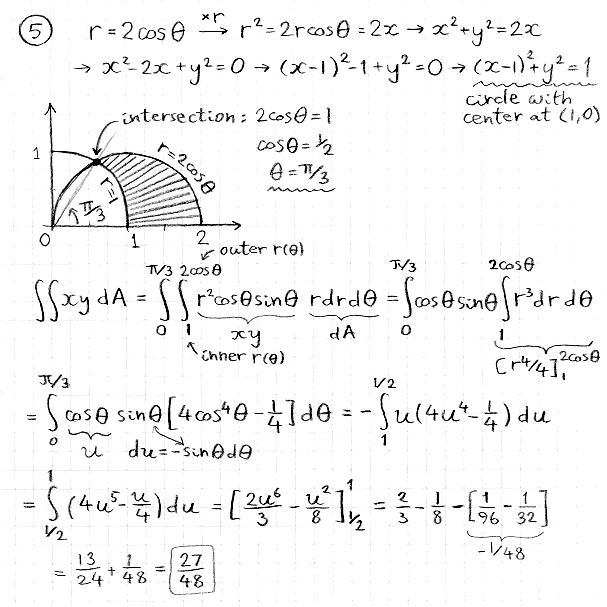 ⑤ r = 2cosθ —×r→ r² = 2rcosθ = 2x → x²+y² = 2x
→ x²-2x+y² = 0 → (x-1)²-1+y² = 0 → (x-1)²+y² = 1
circle with
center at (1,0)
intersection: 2cosθ = 1
cosθ = 1/2
θ = π/3
1
r=1
r=2cosθ
π/3
0 1 2
outer r(θ)
∬xy dA = ∫₀^{π/3} ∫₁^{2cosθ} r²cosθsinθ rdrdθ = ∫₀^{π/3} cosθsinθ ∫₁^{2cosθ} r³dr dθ
xy dA [r⁴/4]₁^{2cosθ}
inner r(θ)
= ∫₀^{π/3} cosθ sinθ[4cos⁴θ - 1/4]dθ = -∫₁^{1/2} u(4u⁴-1/4)du
u du=-sinθdθ
= ∫_{1/2}^{1} (4u⁵-u/4)du = [2u⁶/3 - u²/8]_{1/2}^{1} = 2/3 - 1/8 - [1/96 - 1/32]
-1/48
= 13/24 + 1/48 = 27/48